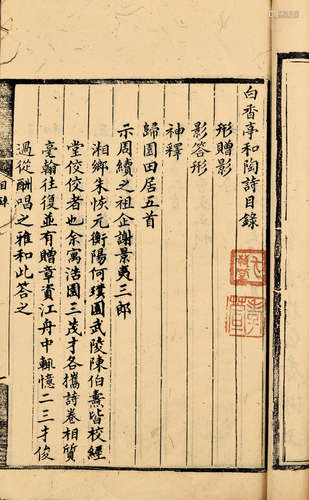 白香亭和陶詩目錄
形贈影
影答形
神釋
歸園田居五首
示周續之祖企謝景夷三郎
湘鄉朱恢元衡陽何璞園武陵陳伯熹皆校經
堂佼佼者也余寓浩園三茂才各攜詩卷相質
臺翰往復並有贈章資江舟中輒憶二三才俊
過從酬唱之雅和此答之
目錄